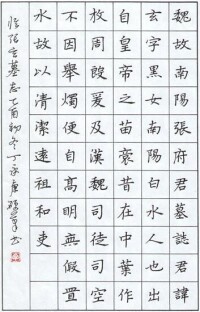 魏故南陽張府君墓誌君諱
玄字黑女南陽白水人也出
自皇帝之苗裔昔在中葉作
牧周殷爰及漢魏司徒司空
不因舉燭便自高明無假置
水故以清潔遠祖和吏
臨張玄墓志乙酉初冬丁永康硬筆書